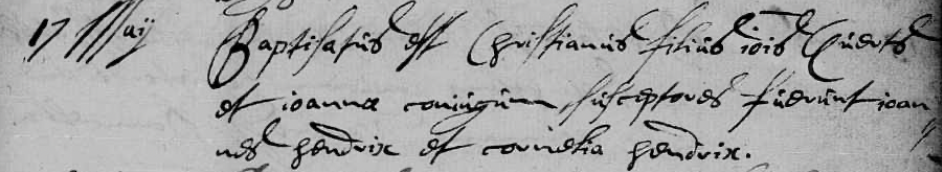 17 Maij Baptisatus est Christianus filius iois Euerts
et ioannæ coniugum susceptores fuerunt ioan
nes hendrix et cornelia hendrix.